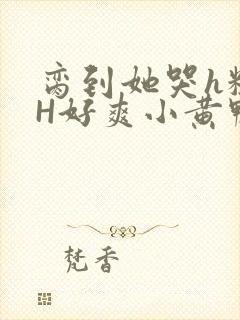 脔到她哭h
H好爽小黄
梵香